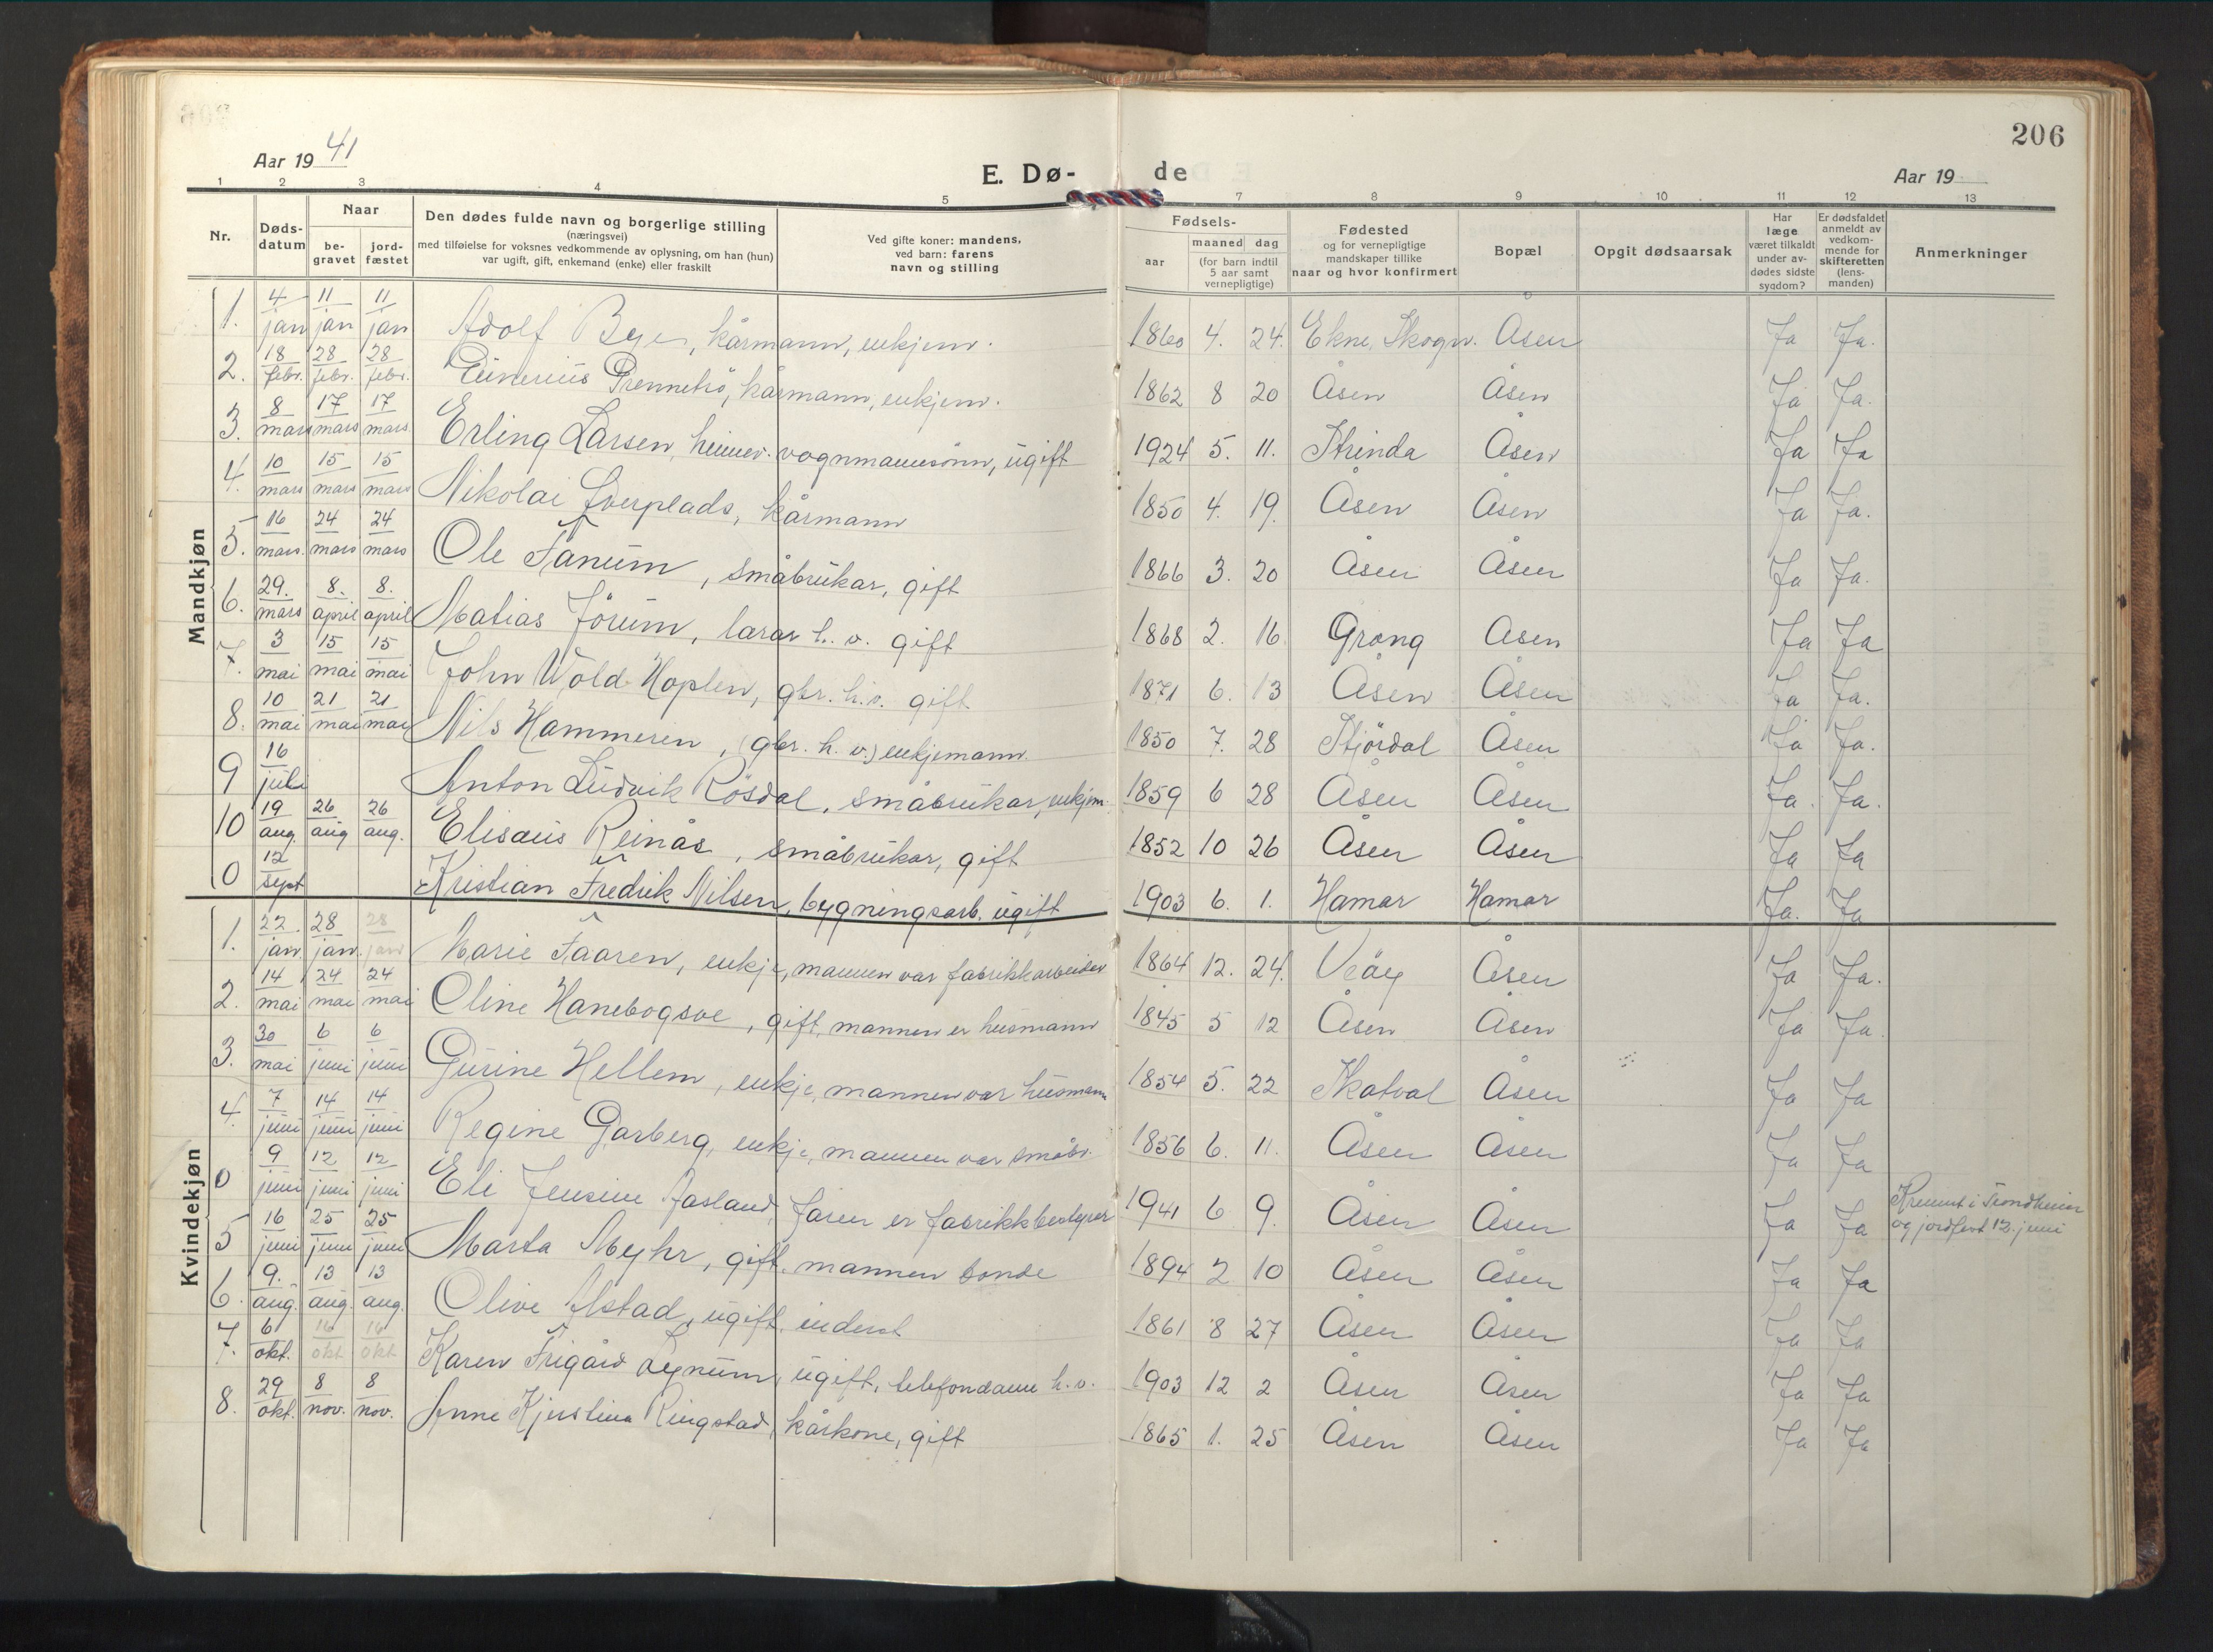 206
Aar 19 41
E. Dø- de
Aar 19
1 2 3 4 5 7 8 9 10 11 12 13
Nr.
Døds-datum
Naar
be-gravet
jord-fæstet
Den dødes fulde navn og borgerlige stilling
(næringsvei)
med tilføielse for voksnes vedkommende av oplysning, om han (hun)
var ugift, gift, enkemand (enke) eller fraskilt
Ved gifte koner: mandens,
ved barn: farens
navn og stilling
Fødsels-
aar
maaned dag
(for barn indtil
5 aar samt
vernepligtige)
Fødested
og for vernepligtige
mandskaper tillike
naar og hvor konfirmert
Bopæl
Opgit dødsaarsak
Har
læge
været tilkaldt
under av-
dødes sidste
sygdom?
Er dødsfaldet
anmeldt av
vedkom-
mende for
skifteretten
(lens-
manden)
Anmerkninger
Mandkjøn
1. 4 jan 11 jan 11 jan Adolf Bye, kårmann, enkjem. 1860 4. 24. Ekne, Skogn. Åsen Ja Ja.
2. 18 febr. 28 febr. 28 febr. Einerius Prennetrö, kårmann, enkjem. 1862 8 20 Åsen Åsen Ja Ja.
3. 8 mars 17 mars 17 mars Erling Larsen, heimev. vognmannsönn, ugift 1924 5. 11. Strinda Åsen Ja Ja
4. 10 mars 15 mars 15 mars Nikolai kårmann 1850 4. 19. Åsen Åsen Ja Ja.
5. 16 mars. 24 mars 24 mars Ole Fanum, småbrukar, gift 1866 3. 20 Åsen Åsen Ja Ja.
6. 29. mars 8. april 8. april Matias Jörum, lærar h. v. gift 1868 2. 16. Grong Åsen Ja Ja
7. 3 mai 15 mai 15 mai John Wold Hoplen, gbr. h.v. gift 1871 6. 13 Åsen Åsen Ja Ja.
8. 10 mai 21 mai 21 mai Nils Hammeren, (gbr. h. v.) enkjemann. 1850 7. 28 Stjördal Åsen Ja Ja.
9 16 juli Anton Ludvik Rösdal, småbrukar, enkjem. 1859 6 28 Åsen Åsen Ja. Ja.
10 19 aug. 26 aug 26 aug. Elisæus Reinås, småbrukar, gift 1852 10 26 Åsen Åsen Ja Ja
0 12 sept Kristian Fredrik Nilsen, bygningsarb. ugift 1903 6. 1. Hamar Hamar Ja. Ja
Kvindekjøn
1. 22 jan. 28 jan. 28 jan Marie Faaren, enkje, mannen var fabrikkarbeider 1864 12. 24. Veöy Åsen Ja Ja.
2. 14 mai 24 mai 24 mai Oline Hanebogsve, gift, mannen er husmann 1845 5 12 Åsen Åsen Ja Ja.
3. 30 mai 6 juni 6 juni Gurine Hellem, enkje, mannen var husmann 1854 5. 22 Skatval Åsen Ja Ja
4. 7 juni 14 juni 14 juni Regine Garberg, enkje, mannen var småbr. 1856 6. 11. Åsen Åsen Ja Ja
0 9 juni 12 juni 12 juni Eli Jensine Aasland, faren er fabrikkbestyrer 1941 6 9. Åsen Åsen Ja Ja Kremert i Trondheim
og jordfest 12. juni
5 16 juni 25 juni 25 juni Marta Myhr, gift, mannen bonde 1894 2 10 Åsen Åsen Ja Ja
6. 9. aug. 13 aug. 13 aug. Olive Alstad, ugift, inderst 1861 8 27 Åsen Åsen Ja Ja
7. 6 okt. 16 okt 16 okt Karen Frigård Lynum, ugift, telefondame h. v. 1903 12 2 Åsen Åsen Ja Ja
8. 29 okt. 8 nov. 8 nov. Anne Kjerstina Ringstad, kårkone, gift 1865 1. 25 Åsen Åsen Ja Ja